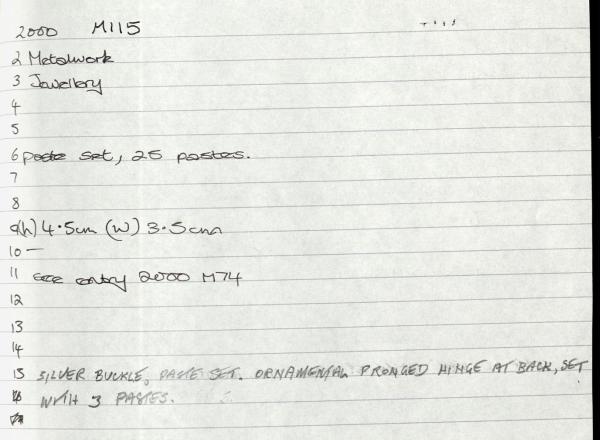 2000 M115
2 Metalwork
3 Jewellery
4
5
6 paste set, 25 pastes.
7
8
9(h) 4.5cm (w) 3.5cm
10 —
11 see entry 2000 M74
12
13
14
15 SILVER BUCKLE, PASTE SET. ORNAMENTAL PRONGED HINGE AT BACK, SET
16 WITH 3 PASTES.